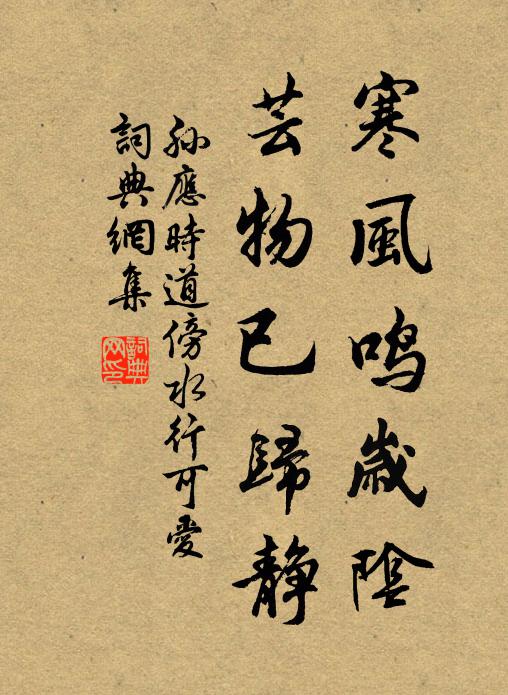 寒風鳴歲陰
芸物已歸靜
孫應時道傍水行可愛
詞典網集
詞典網印